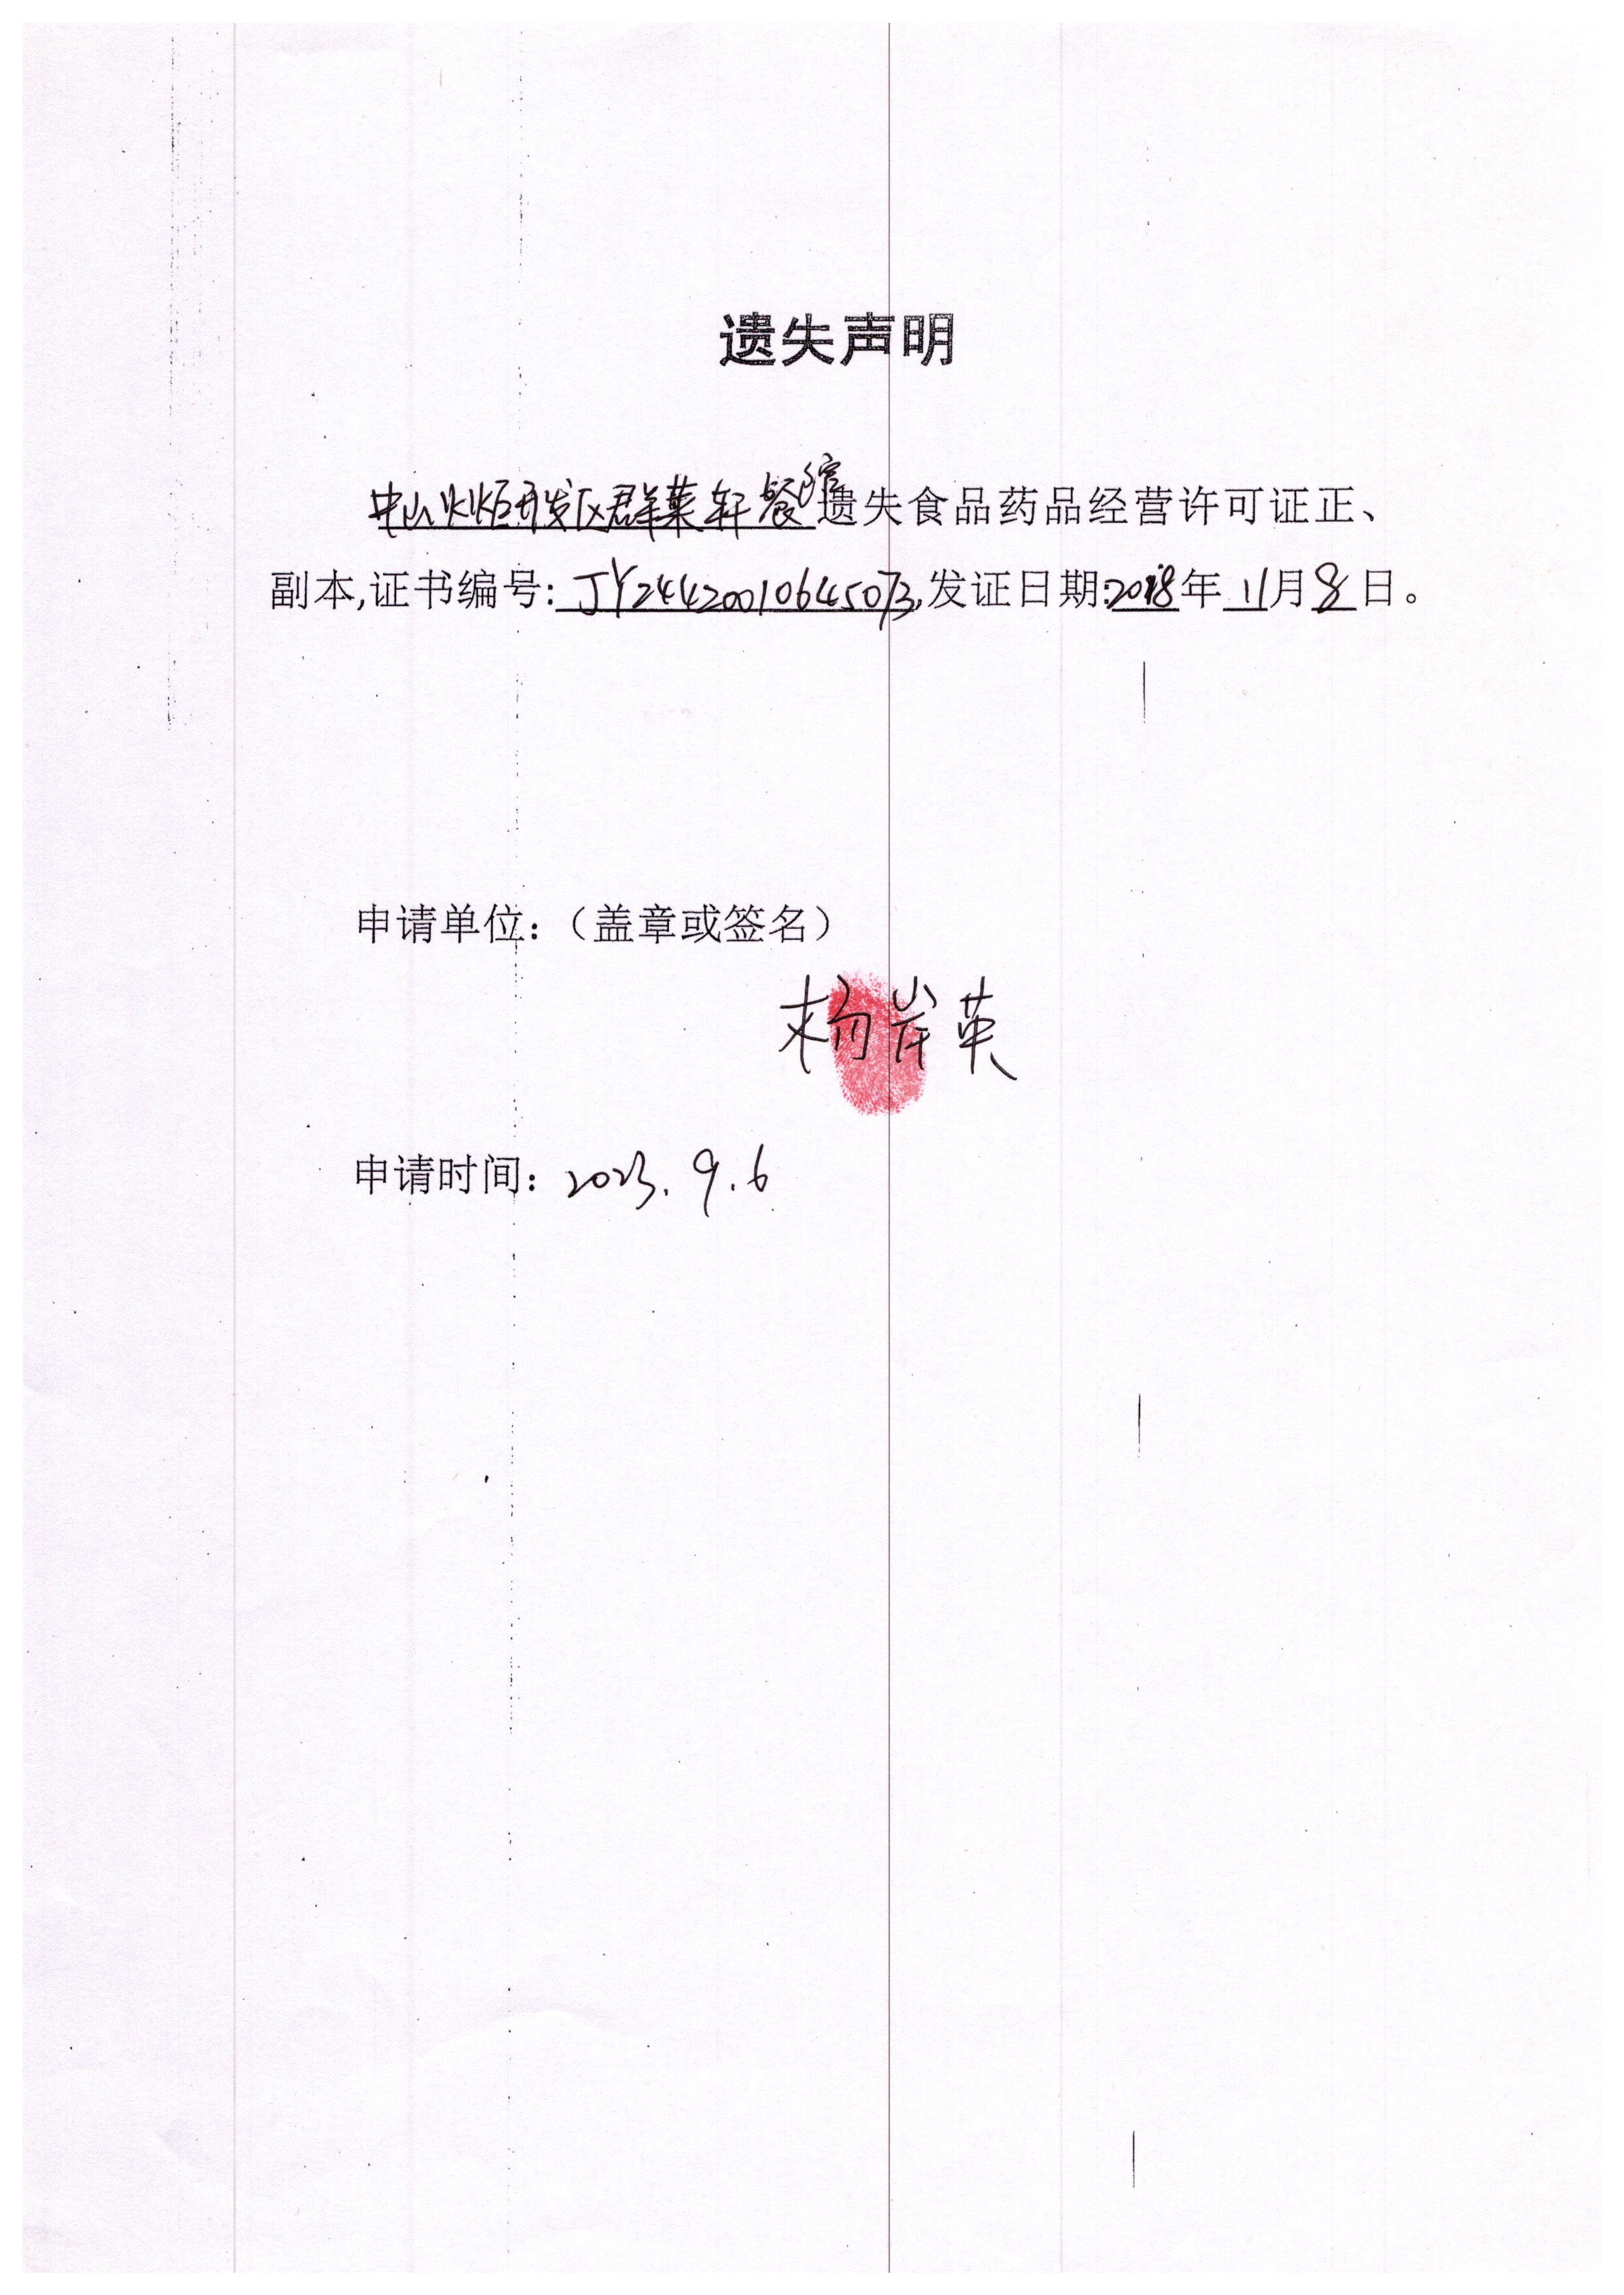 遗失声明
中山火炬开发区群菜轩餐馆遗失食品药品经营许可证正、
副本,证书编号:JY24420010645073,发证日期:2018年11月8日。
申请单位：（盖章或签名）
杨岸英
申请时间：2023.9.6